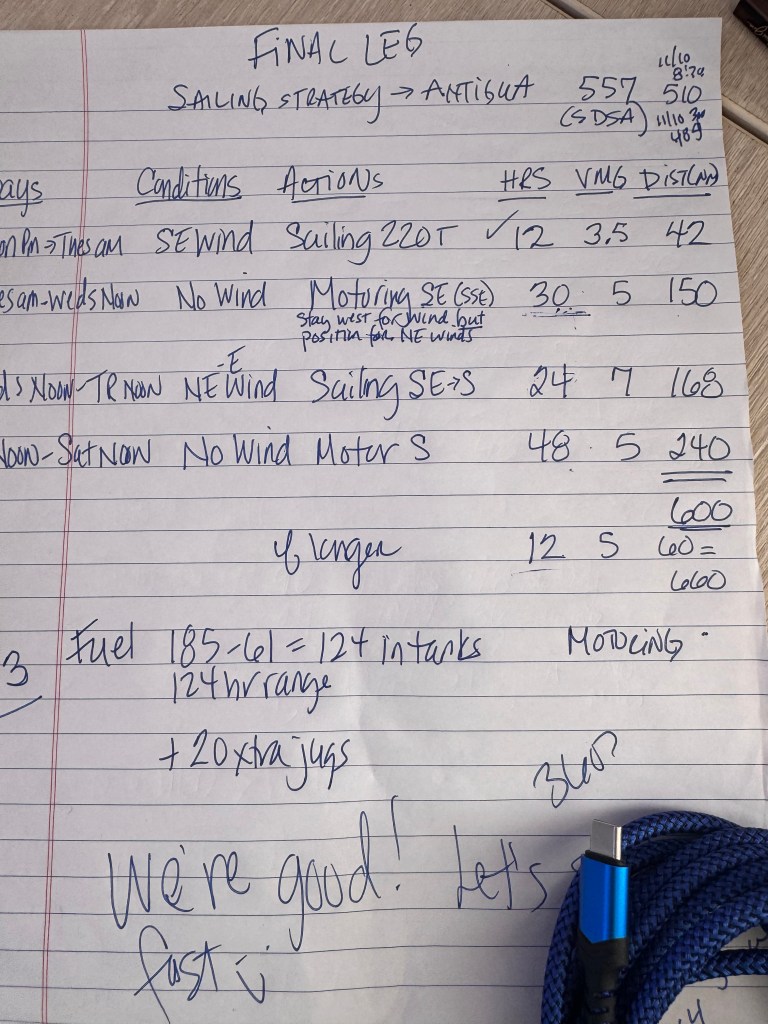 FINAL LEG
11/10
8:20
SAILING STRATEGY → ANTIGUA 557 510
(SDSA) 11/10
489
ays Conditions Actions HRS VMG DIST(NM)
on Pm→Thes am SE Wind Sailing 220T ✓12 3.5 42
es am-weds Noon No Wind Motoring SE (SSE) 30 5 150
Stay west for wind but
position for NE winds
-E
ds Noon-TR Noon NE Wind Sailing SE→S 24 7 168
Noon-Sat Noon No Wind Motor S 48 5 240
600
if longer 12 5 60=
660
3 Fuel 185-61=124 in tanks
124 hr range
+20 xtra jugs
360
We're good! Let's
fast